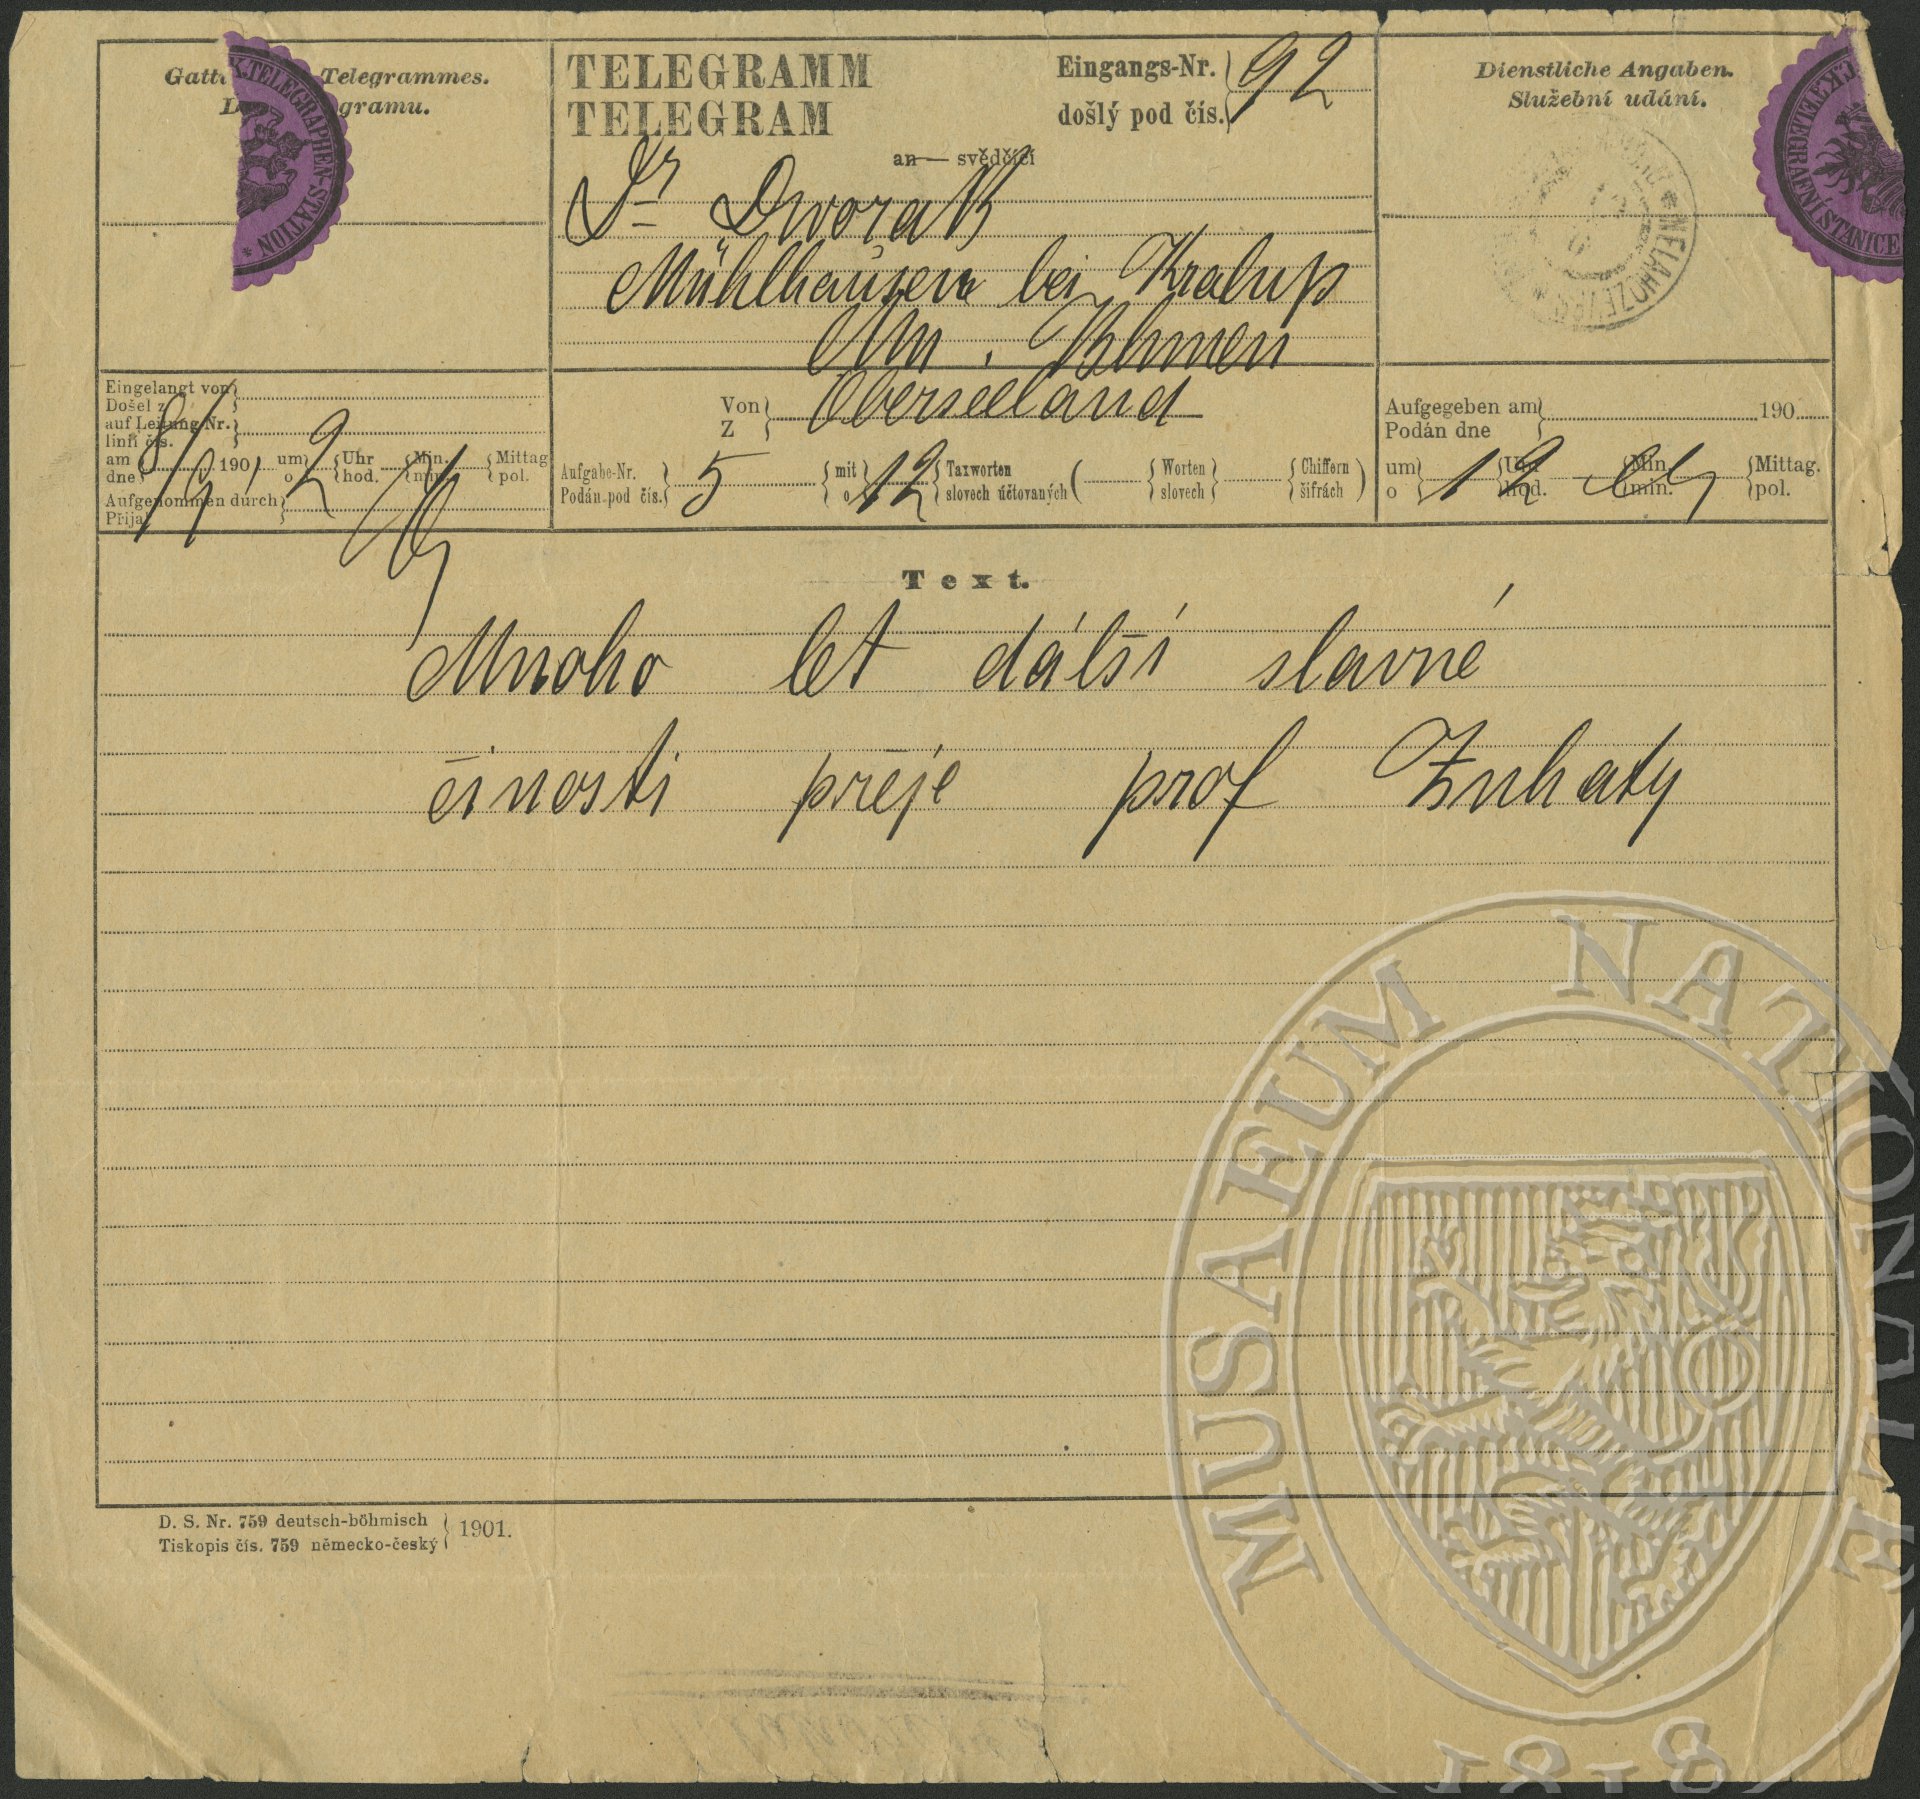 Telegrammes.
gramu.
K.TELEGRAPHEN-STATION *
TELEGRAMM
TELEGRAM
Eingangs-Nr.
došlý pod čís.
92
an — svědčící
Dr Dvorak
Mühlhausen bei Kralup
Bhmen
Dienstliche Angaben.
Služební udání.
TELEGRAFNÍ STANICE
* NELAHOZEVES
Eingelangt von
Došel z
auf Leitung Nr.
linfi čís.
am
dne
8/9 190 1 um
o
2 Uhr
hod.
Min.
min.
Mittag
pol.
Aufgenommen durch
Přijal
Von
Z
Oberseeland
Aufgabe-Nr.
Podán. pod čís.
5 mit
o
12 Taxworten
slovech účtovaných
( Worten
slovech
Chiffern
šifrách )
Aufgegeben am
Podán dne
190
um
o
12 Uhr
hod.
Min.
min.
Mittag.
pol.
Text.
Mnoho let dálší slavné
činosti přeje prof Znhaty
D. S. Nr. 759 deutsch-böhmisch
Tiskopis čís. 759 německo-český
1901.
MUSAEUM NATIONALE
1818